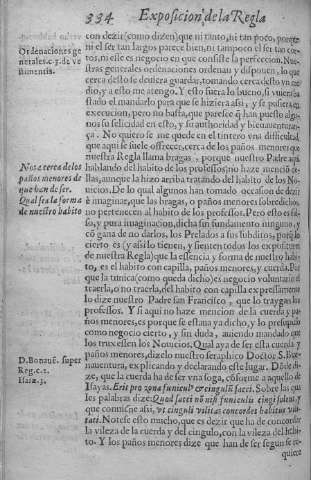 334 Exposicion de la Regla
con dezir (como dizen) que ni tanto, ni tan poco, porque
ni el ser tan largos parece bien, ni tampoco el ser tan cortos,
ni esse es negocio en que consiste la perfeccion. Nuestras
generales ordenaciones ordenan y disponen, lo que
cerca desto se deuiera guardar, tomando cerca desto vn medio,
y a esto me atengo. Y esto fuera lo bueno, si vuiera
stado el mandarlo para que se hiziera assi, y se pusiera en
execucion, pero no basta, que parece que han puesto algunos
su felicidad en esto, y su authoridad y bienauenturança.
No quiero se me quede en el tintero vna dificultad,
que aqui se suele offrecer, cerca de los paños menores que
nuestra Regla llama bragas, porque nuestro Padre aqui
hablando del habito de los professos, no haze mencion dellas,
aunque la hizo arriba tratando del habito de los Nouicios.
De lo qual algunos han tomado occasion de dezir
è imaginar, que las bragas, o paños menores sobredichos
no pertenecen al habito de los professos. Pero esto es falso,
y pura imaginacion, dicha sin fundamento ninguno, y
cō gana de no darlos, los Prelados a sus subditos, porque lo
cierto es (y assi lo tienen, y sienten todos los expositores
de nuestra Regla) que la essencia y forma de nuestro habito,
es el habito con capilla, paños menores, y cuerda. Porque
la tunica (como queda dicho) es negocio voluntario el
traerla, o no traerla, del habito con capilla expressamente
lo dize nuestro Padre san Francisco, que lo traygan los
professos. Y si aqui no haze mencion de la cuerda y paños
menores, es porque se estaua ya dicho, y lo presupuso
como negocio cierto, y sin duda, auiendo mandado que
los truxessen los Nouicios. Qual aya de ser esta cuerda y
paños menores, dizelo nuestro seraphico Doctor S. Buenauentura,
explicando y declarando este lugar. Donde dize,
que la cuerda ha de ser vna soga, cōforme a aquello de
Isayas. Erit pro zona funicul' & cingulū facti. Sobre las quales
palabras dize: Quod facti nō nisi funiculis cingi solent, y
que conuiene assi, vt cinguli vilitas concordet habitus vilitati.
Notese esto mucho, que es dezir que ha de concordar
la vileza de la cuerda y del cingulo, con la vileza del habito.
Y los paños menores dize que han de ser segun se requiere
Ordenaciones generales.
c. 3. de vestimentis.
Nota cerca de los
paños menores de
que han de ser.
Qual sea la forma
de nuestro habito
D. Bonauē. super
Reg. c. 2.
Isaiæ. 3.